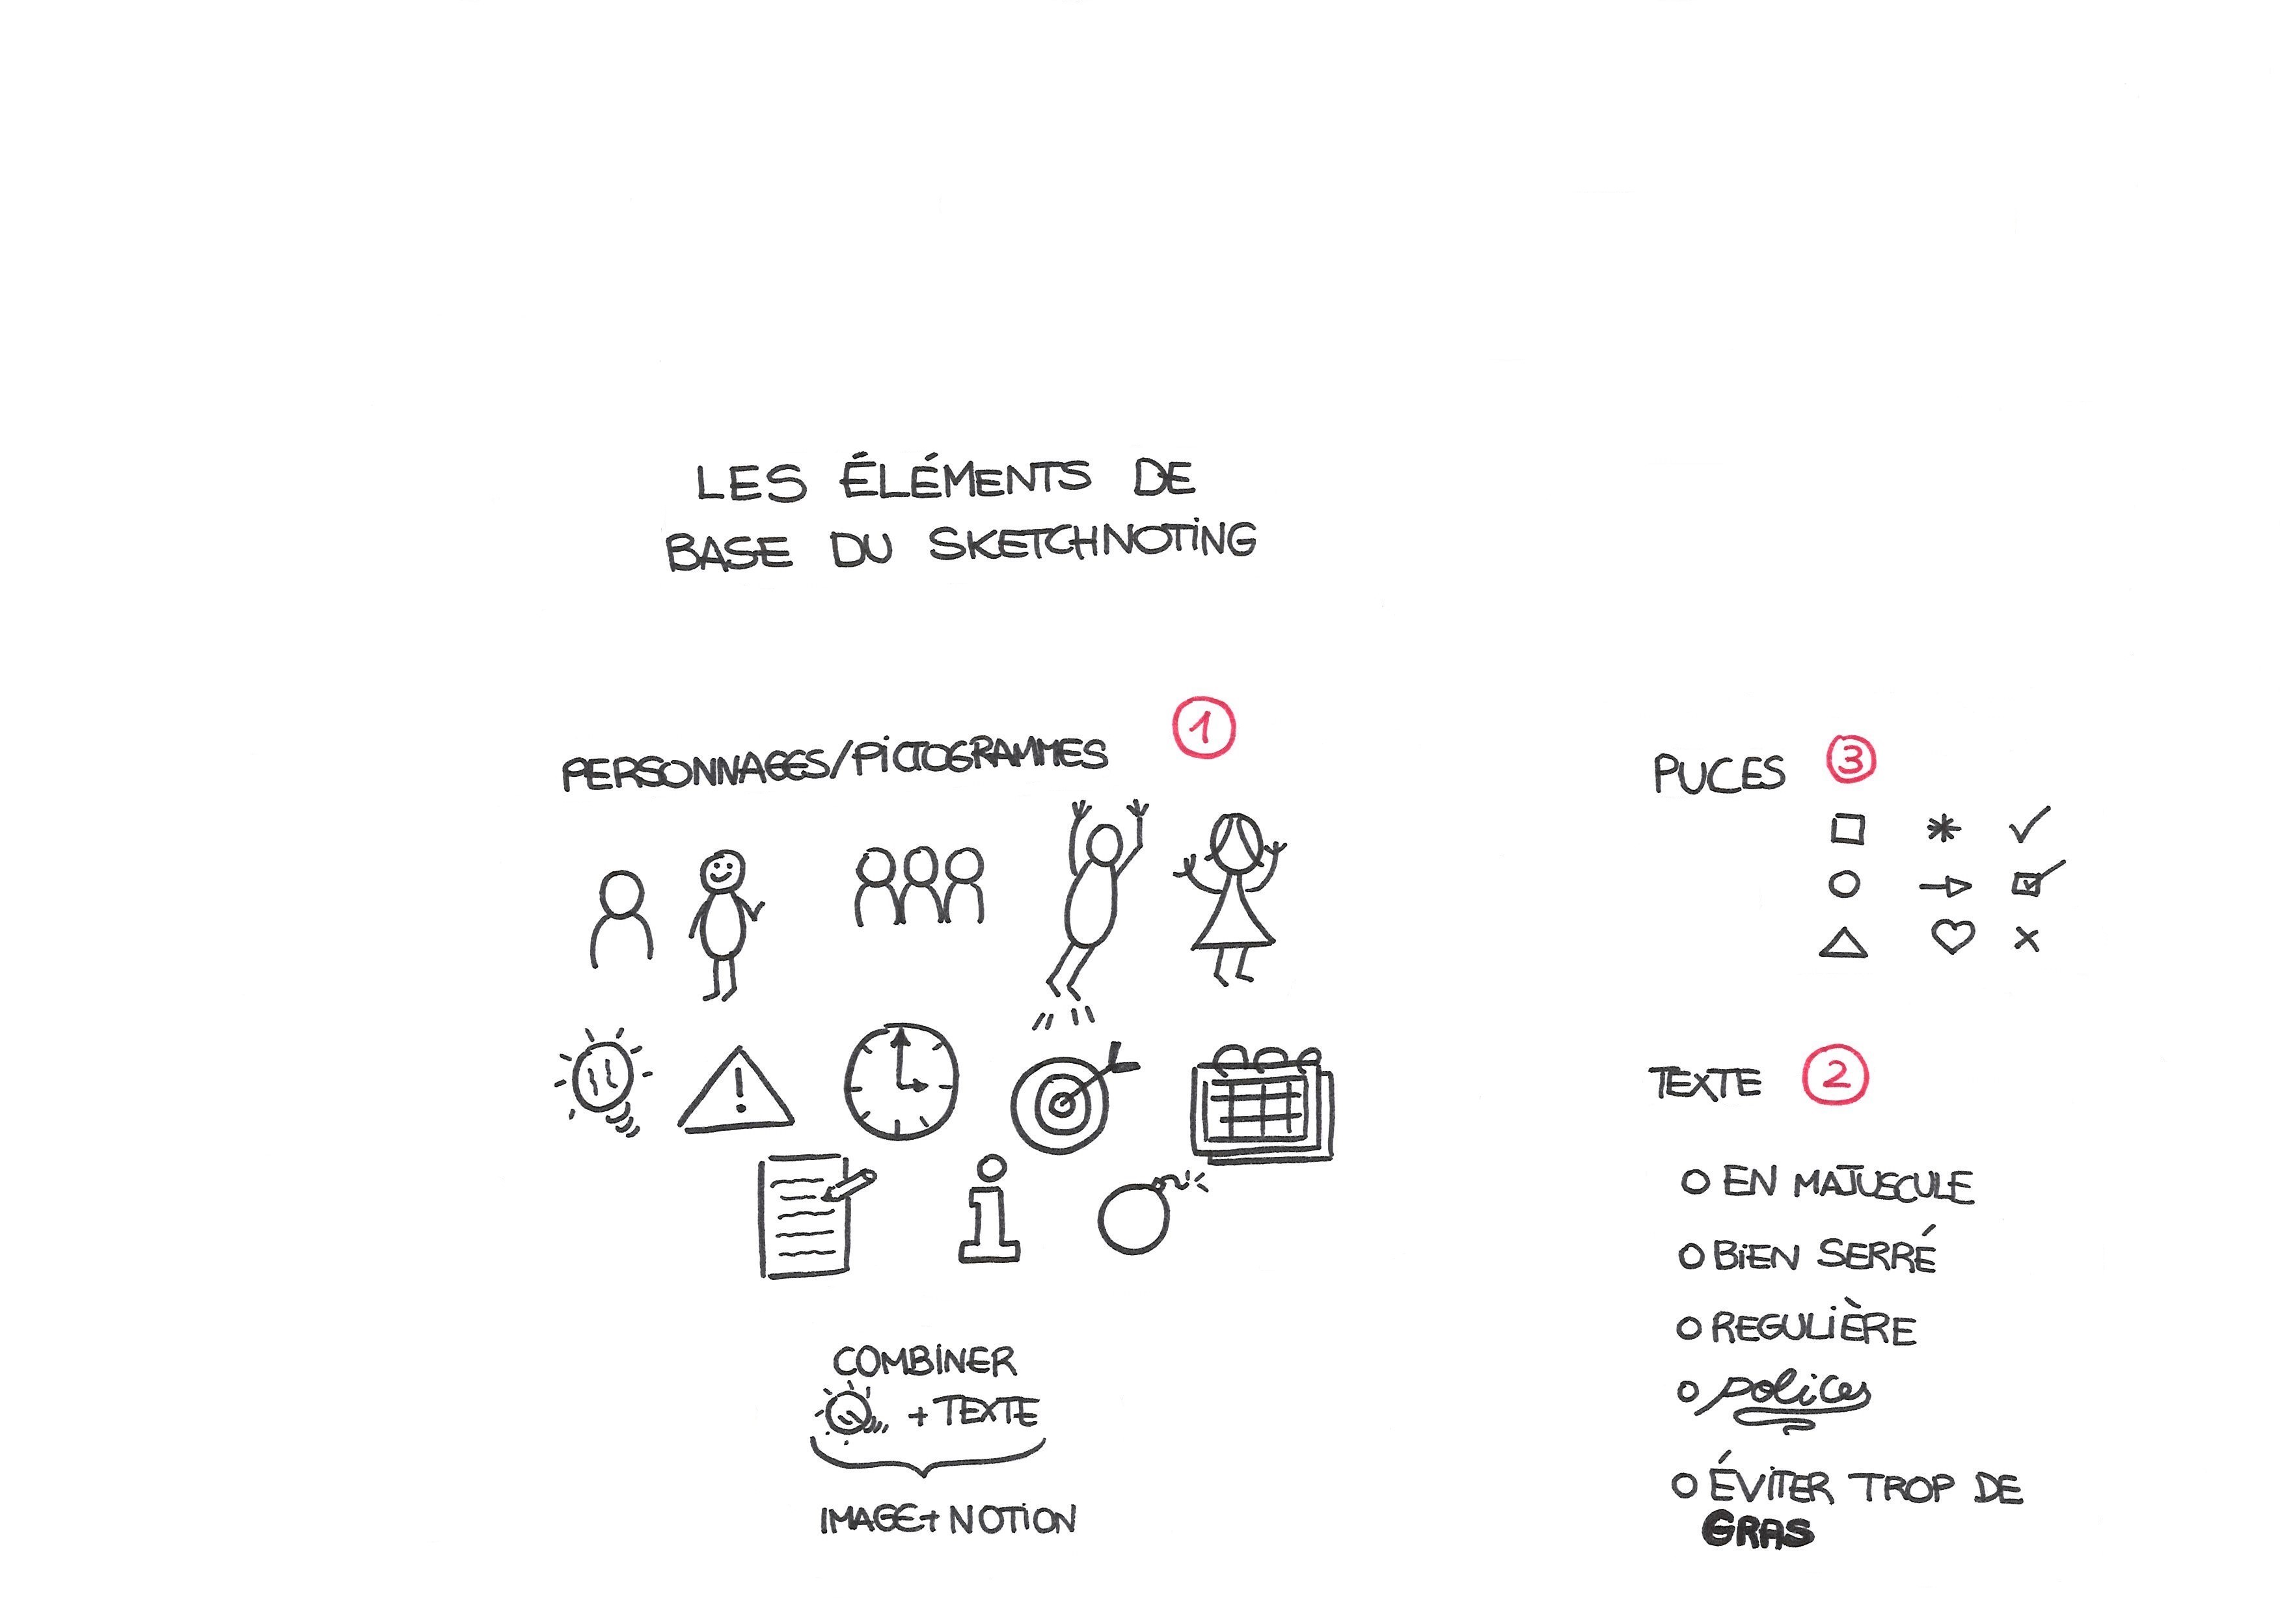 LES ÉLÉMENTS DE
BASE DU SKETCHNOTING
PERSONNAGES/PICTOGRAMMES 1
COMBINER
+ TEXTE
IMAGE + NOTION
PUCES 3
TEXTE 2
O EN MAJUSCULE
O BIEN SERRÉ
O REGULIÈRE
O polices
O ÉVITER TROP DE
GRAS